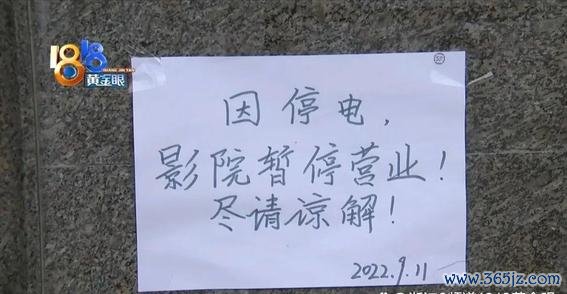 1818
黄金眼
因停电，
影院暂停营业！
尽请谅解！
2022.9.11
www.365jz.com